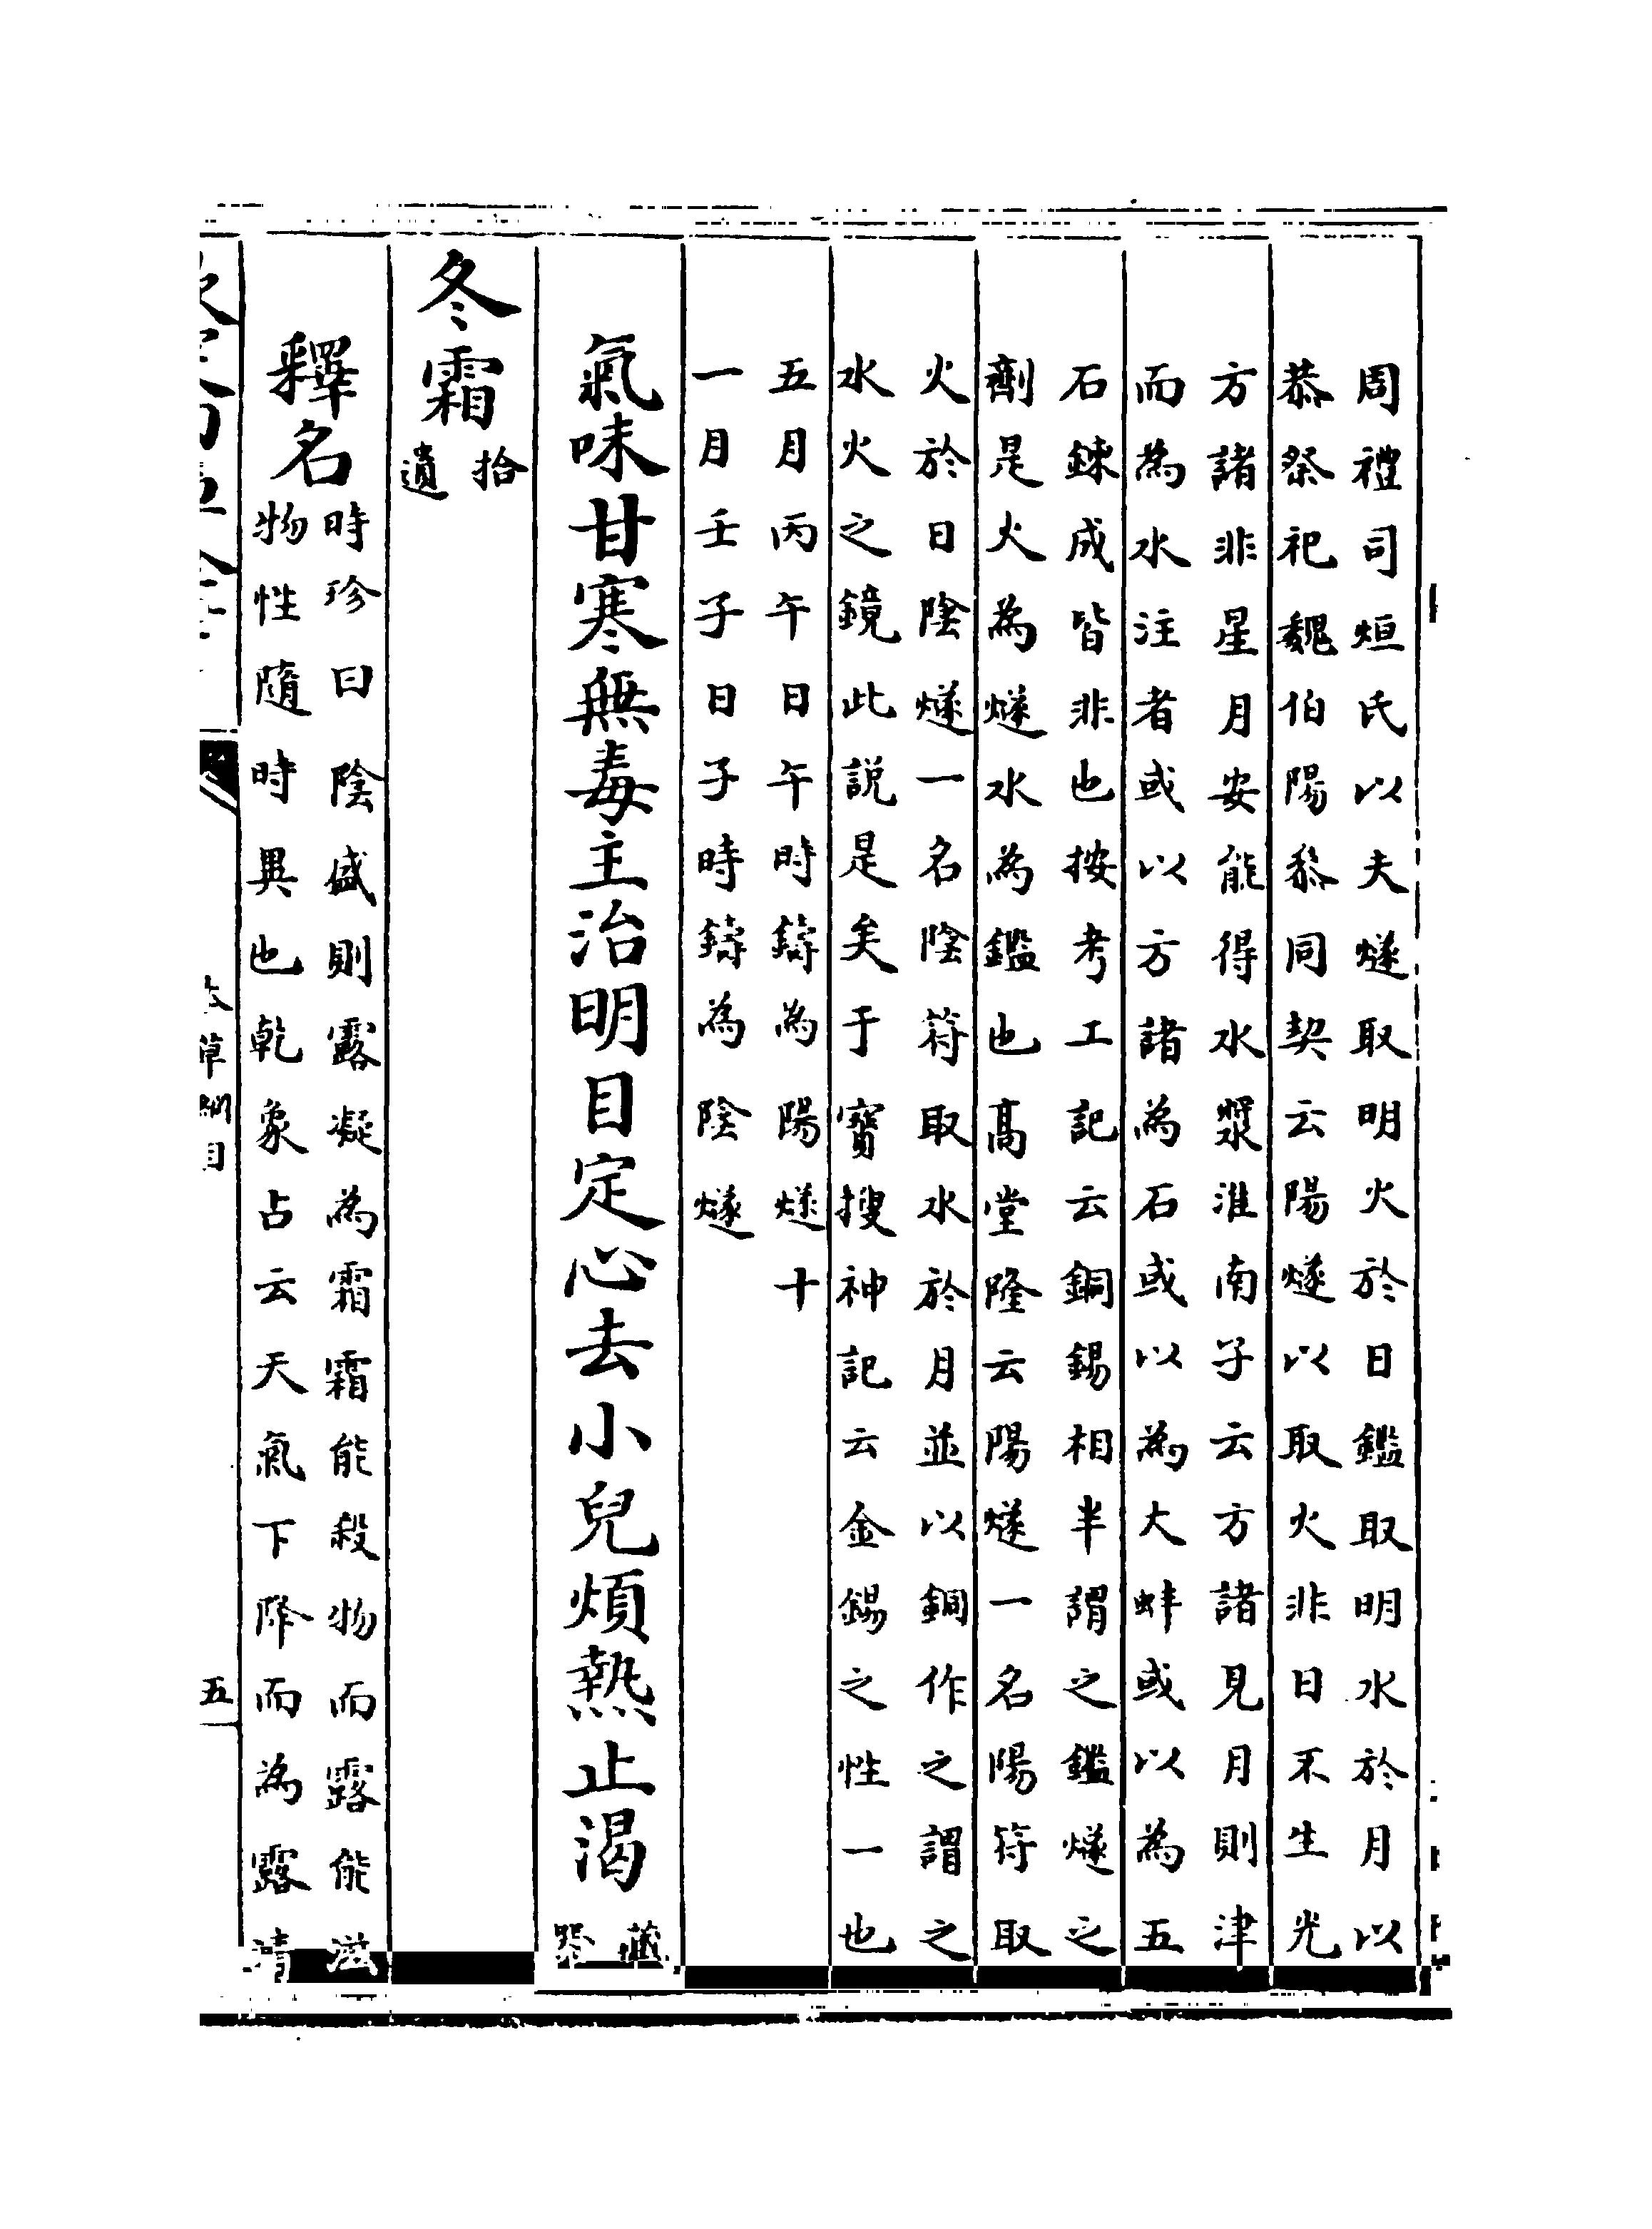 周禮司烜氏以夫燧取明火於日鑑取明水於月以
恭祭祀魏伯陽叅同契云陽燧以取火非日不生光
方諸非星月安能得水漿淮南子云方諸見月則津
而為水注者或以方諸為石或以為大蚌或以為五
石錬成皆非也按考工記云銅錫相半謂之鑑燧之
劑是火為燧水為鑑也髙堂隆云陽燧一名陽符取
火於日陰燧一名陰符取水於月並以銅作之謂之
水火之鏡此説是矣于寳搜神記云金錫之性一也
五月丙午日午時鑄為陽燧十
一月壬子日子時鑄為陰燧
氣味甘寒無毒主治明目定心去小兒煩熱止渴
藏器
冬霜
拾遺
釋名
時珍曰陰盛則露凝為霜霜能殺物而露能滋
物性隨時異也乾象占云天氣下降而為露清
本草綱目
五